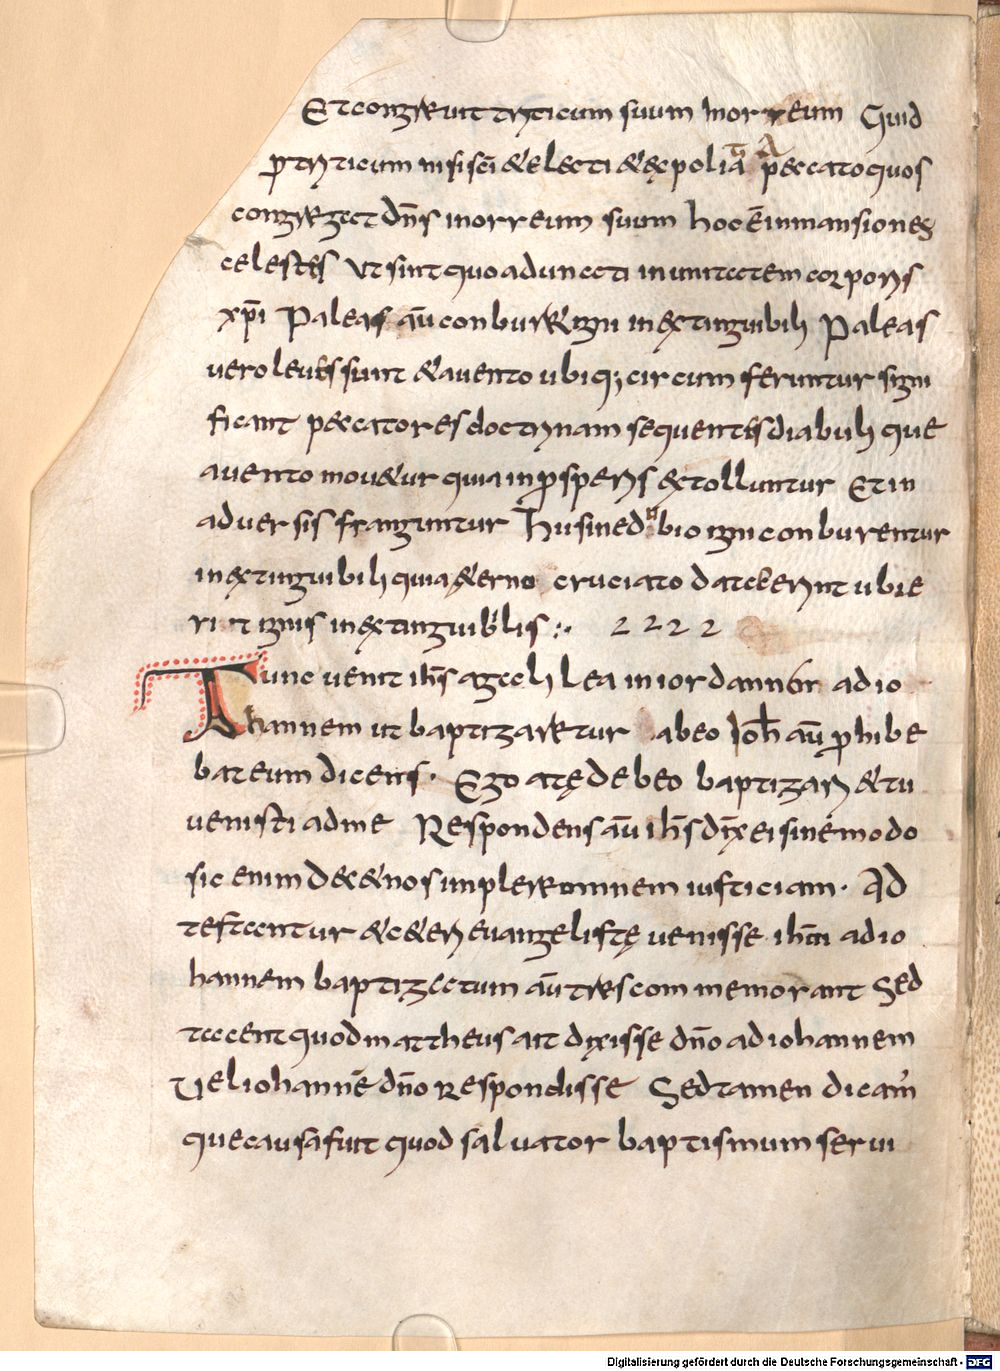 Et congreuit triticum suum inorreum Quid
p̱ triticum nisi sc̄i & electi & expoliati A peccato quos
congregat dn̄s inorreum suum hoc ē inmansiones
celestes Ut sint quo adunati inunitatem corporis
xp̄i Paleas aū conburere igni inextinguibili Paleas
uero leues sunt & auento ubiq; circum feruntur signi
ficant peccatores doctrinam sequentes diabuli que
auento mou&ur quia in prosperis extolluntur Et in
aduersis franguntur Huiusmodi bio igni conburentur
inextinguibili quia &erno cruciato datkerint ubi e
rit ignis inextinguiblis :· 2222
Tunc uenit ih̄s agalilea iniordannen adio
hannem ut baptizaretur abeo Ioh̄ aū prohibe
bat eum dicens · Ego ate debeo baptizari & tu
uenisti adme Respondens aū ih̄s dix̄ ei sine modo
sic enim dec& nos implere omnem iusticiam · Ad
testantur & c&eri euangeliste uenisse ih̄m adio
hannem baptizatum aū tres commemorant Sed
tacent quod mattheus ait dixisse dn̄o adiohannem
Uel iohannē dn̄o respondisse Sed tamen dicam̄
que causa fuit quod saluator baptismum serui
Digitalisierung gefördert durch die Deutsche Forschungsgemeinschaft - DFG